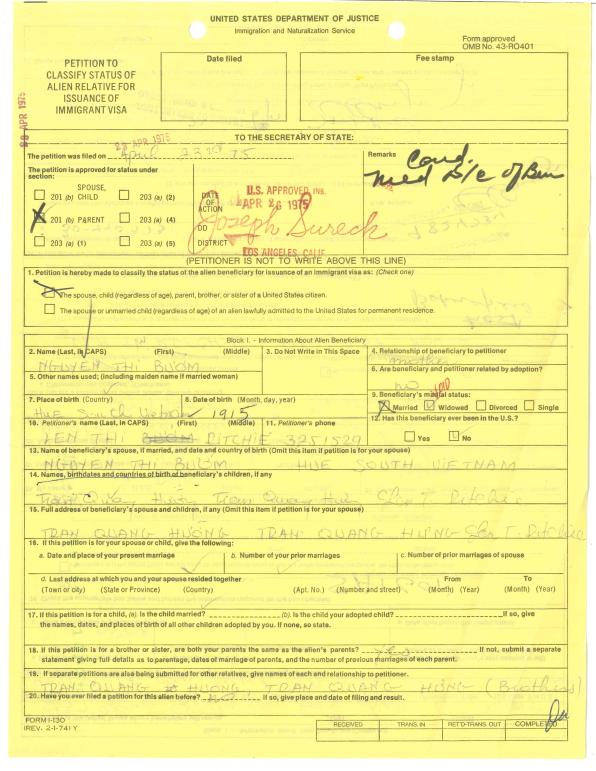 UNITED STATES DEPARTMENT OF JUSTICE
Immigration and Naturalization Service
Form approved
OMB No. 43-RO401
PETITION TO
CLASSIFY STATUS OF
ALIEN RELATIVE FOR
ISSUANCE OF
IMMIGRANT VISA
Date filed
Fee stamp
28 APR 1975
28 APR 1975
TO THE SECRETARY OF STATE:
The petition was filed on April 23rd 75
Remarks Cond.
Need B/C of Ben
The petition is approved for status under
section:
SPOUSE,
201 (b) CHILD
203 (a) (2)
X 201 (b) PARENT
203 (a) (4)
203 (a) (1)
203 (a) (5)
DATE
OF
ACTION
DD
DISTRICT
U.S. APPROVED, INS.
APR 26 1975
Joseph Sureck
LOS ANGELES, CALIF.
(PETITIONER IS NOT TO WRITE ABOVE THIS LINE)
1. Petition is hereby made to classify the status of the alien beneficiary for issuance of an immigrant visa as: (Check one)
X The spouse, child (regardless of age), parent, brother, or sister of a United States citizen.
The spouse or unmarried child (regardless of age) of an alien lawfully admitted to the United States for permanent residence.
Block I. - Information About Alien Beneficiary
2. Name (Last, In CAPS) (First) (Middle)
NGUYEN THI BUOM
3. Do Not Write in This Space
4. Relationship of beneficiary to petitioner
mother
5. Other names used; (including maiden name if married woman)
6. Are beneficiary and petitioner related by adoption?
no
7. Place of birth (Country)
Hue South Vietnam
8. Date of birth (Month, day, year)
1915
9. Beneficiary's marital status:
Married Widowed Divorced Single
10. Petitioner's name (Last, in CAPS) (First) (Middle)
LEN THI RITCHIE
11. Petitioner's phone
3251529
12. Has this beneficiary ever been in the U.S.?
Yes No
13. Name of beneficiary's spouse, if married, and date and country of birth (Omit this item if petition is for your spouse)
NGUYEN THI BUOM HUE SOUTH VIETNAM
14. Names, birthdates and countries of birth of beneficiary's children, if any
Tran Quang Tran Quang T. Ritchie
15. Full address of beneficiary's spouse and children, if any (Omit this item if petition is for your spouse)
TRAN QUANG HUONG TRAN QUANG HUNG Len T. Ritchie
16. If this petition is for your spouse or child, give the following:
a. Date and place of your present marriage
b. Number of your prior marriages
c. Number of prior marriages of spouse
d. Last address at which you and your spouse resided together
From To
(Town or city) (State or Province) (Country) (Apt. No.) (Number and street) (Month) (Year) (Month) (Year)
17. If this petition is for a child, (a) Is the child married? (b). Is the child your adopted child? If so, give
the names, dates, and places of birth of all other children adopted by you. If none, so state.
18. If this petition is for a brother or sister, are both your parents the same as the alien's parents? yes If not, submit a separate
statement giving full details as to parentage, dates of marriage of parents, and the number of previous marriages of each parent.
19. If separate petitions are also being submitted for other relatives, give names of each and relationship to petitioner.
TRAN QUANG HUONG, TRAN QUANG HUNG (Brothers)
20. Have you ever filed a petition for this alien before? No If so, give place and date of filing and result.
FORM I-130
(REV. 2-1-74) Y
RECEIVED
TRANS. IN
RET'D-TRANS. OUT
COMPLETED